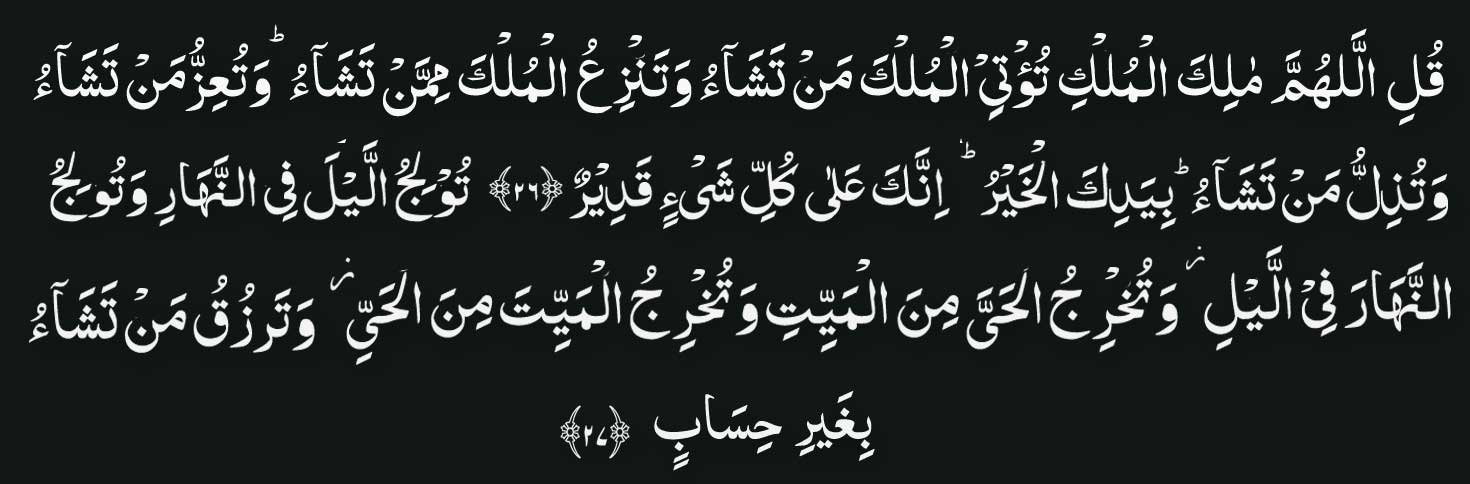 قُلِ الَّلهُمَّ مٰلِكَ الْمُلْكِ تُؤْتِي الْمُلْكَ مَنْ تَشَآءُ وَتَنْزِعُ الْمُلْكَ مِمَّنْ تَشَآءُ ؕ وَتُعِزُّ مَنْ تَشَآءُ
وَتُذِلُّ مَنْ تَشَآءُ ؕ بِيَدِكَ الْخَيْرُ ؕ اِنَّكَ عَلٰى كُلِّ شَىْءٍ قَدِيْرٌ ﴿۲۶﴾ تُوْلِجُ الَّيْلَ فِى النَّهَارِ وَتُوْلِجُ
النَّهَارَ فِىْ الَّيْلِ ؗ وَتُخْرِجُ الْحَىَّ مِنَ الْمَيِّتِ وَتُخْرِجُ الْمَيِّتَ مِنَ الْحَىِّ ؗ وَتَرْزُقُ مَنْ تَشَآءُ
بِغَيرِ حِسَابٍ ﴿۲۷﴾